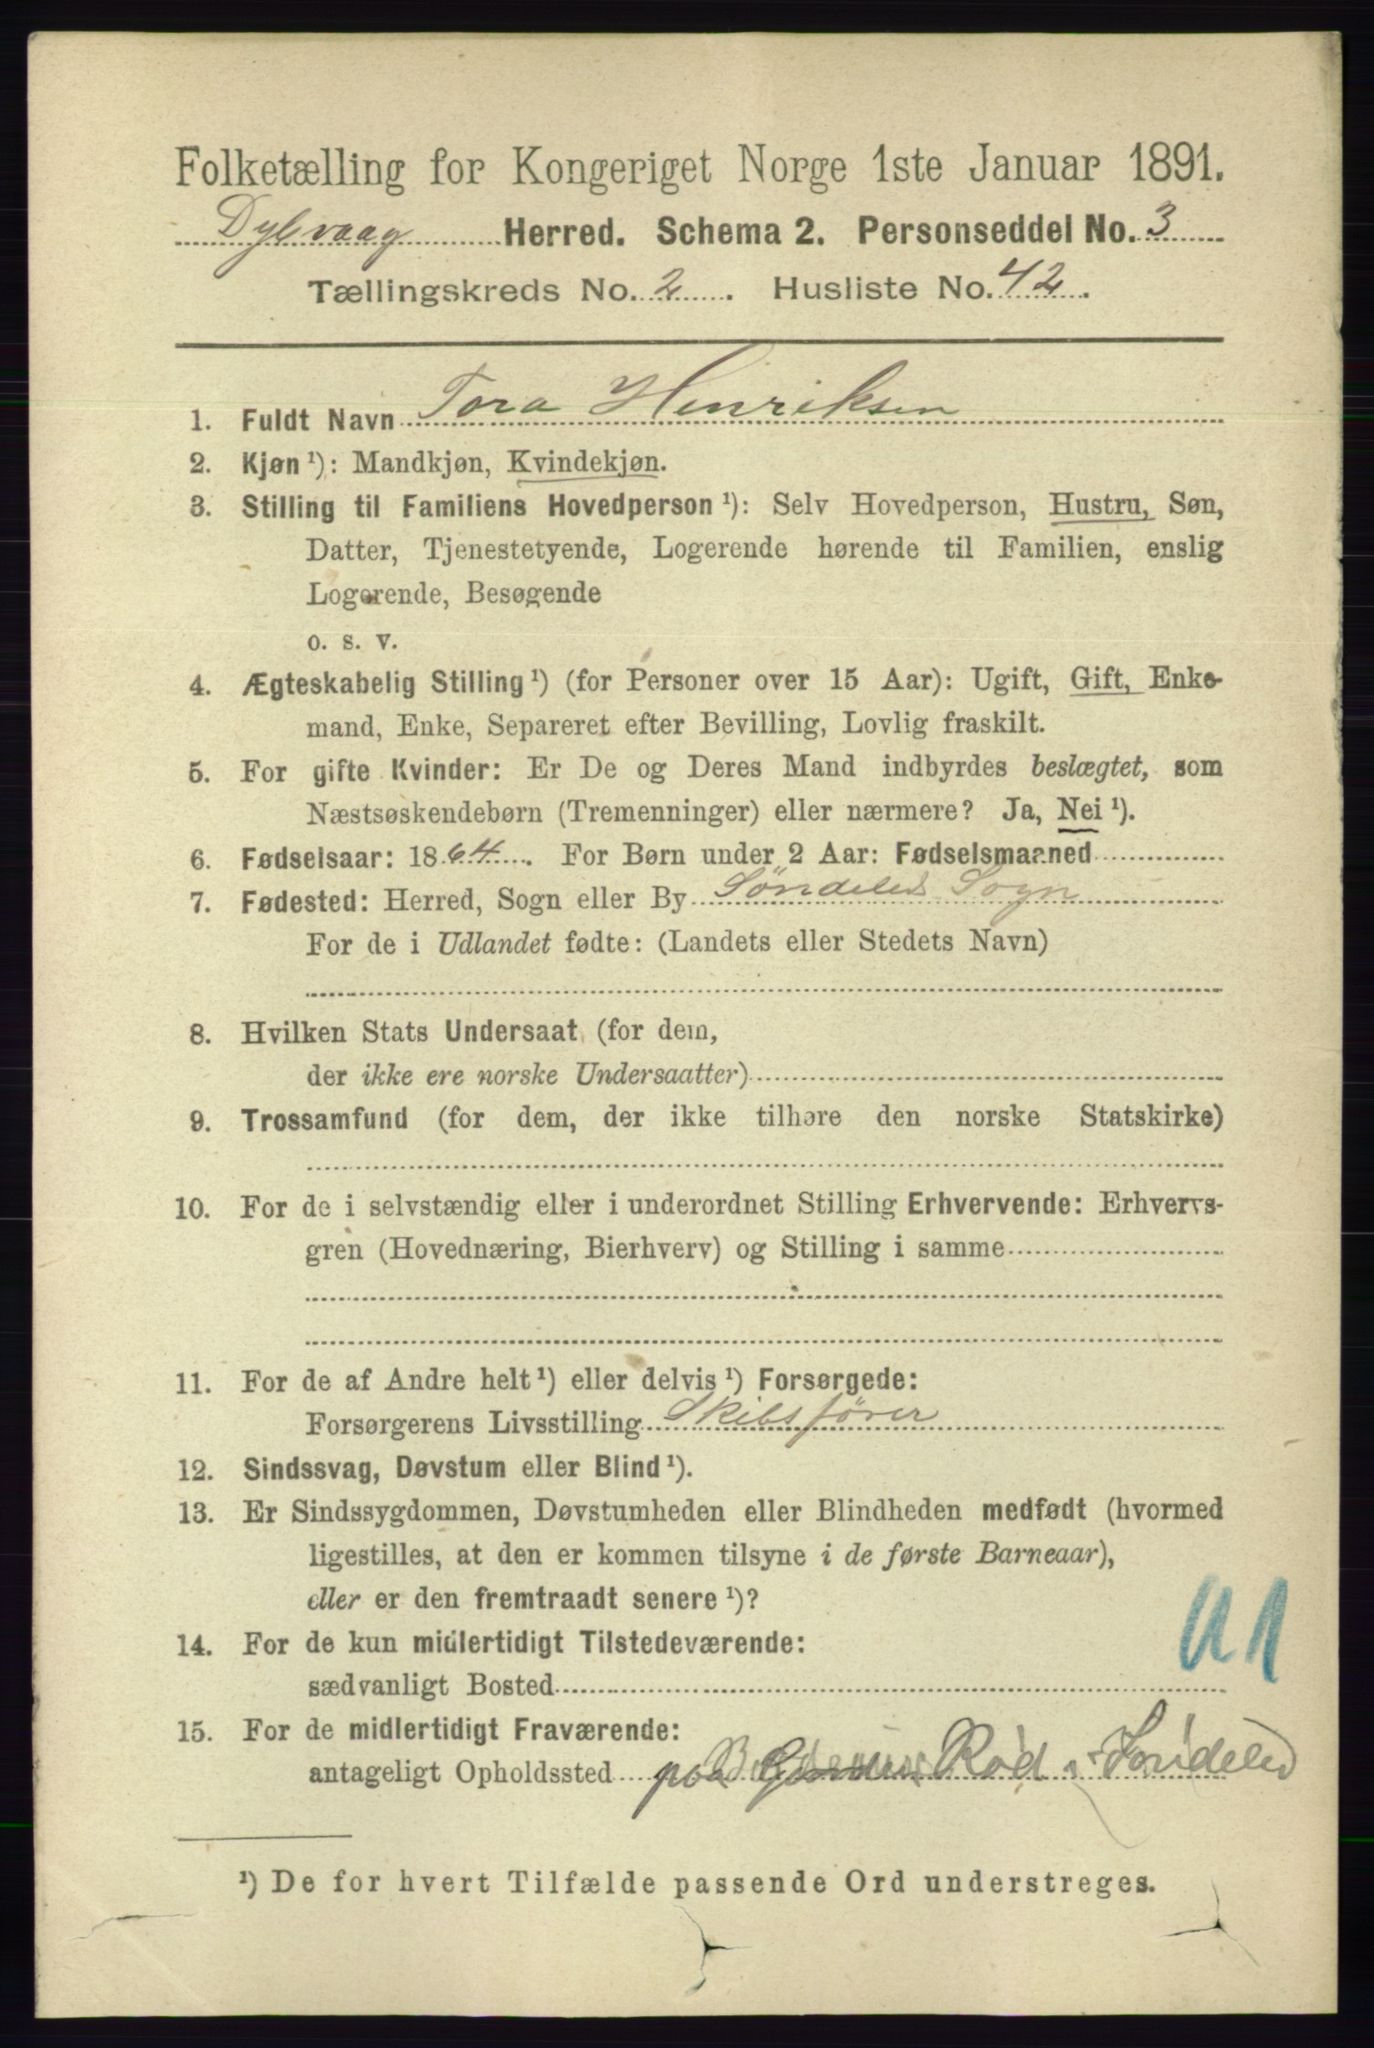 Folketælling for Kongeriget Norge 1ste Januar 1891.
Dybvaag Herred. Schema 2. Personseddel No. 3
Tællingskreds No. 2. Husliste No. 42.
1. Fuldt Navn Tora Henriksen
2. Kjøn ¹): Mandkjøn, Kvindekjøn.
3. Stilling til Familiens Hovedperson ¹): Selv Hovedperson, Hustru, Søn,
Datter, Tjenestetyende, Logerende hørende til Familien, enslig
Logerende, Besøgende
o. s. v.
4. Ægteskabelig Stilling ¹) (for Personer over 15 Aar): Ugift, Gift, Enke-
mand, Enke, Separeret efter Bevilling, Lovlig fraskilt.
5. For gifte Kvinder: Er De og Deres Mand indbyrdes beslægtet, som
Næstsøskendebørn (Tremenninger) eller nærmere? Ja, Nei ¹).
6. Fødselsaar: 1864. For Børn under 2 Aar: Fødselsmaaned
7. Fødested: Herred, Sogn eller By Söndeled Sogn
For de i Udlandet fødte: (Landets eller Stedets Navn)
8. Hvilken Stats Undersaat (for dem,
der ikke ere norske Undersaatter)
9. Trossamfund (for dem, der ikke tilhøre den norske Statskirke)
10. For de i selvstændig eller i underordnet Stilling Erhvervende: Erhvervs-
gren (Hovednæring, Bierhverv) og Stilling i samme
11. For de af Andre helt ¹) eller delvis ¹) Forsørgede:
Forsørgerens Livsstilling Skibsförer
12. Sindssvag, Døvstum eller Blind ¹).
13. Er Sindssygdommen, Døvstumheden eller Blindheden medfødt (hvormed
ligestilles, at den er kommen tilsyne i de første Barneaar),
eller er den fremtraadt senere ¹)?
14. For de kun midlertidigt Tilstedeværende:
sædvanligt Bosted
15. For de midlertidigt Fraværende:
antageligt Opholdssted paa Rød i Søndeled
¹) De for hvert Tilfælde passende Ord understreges.